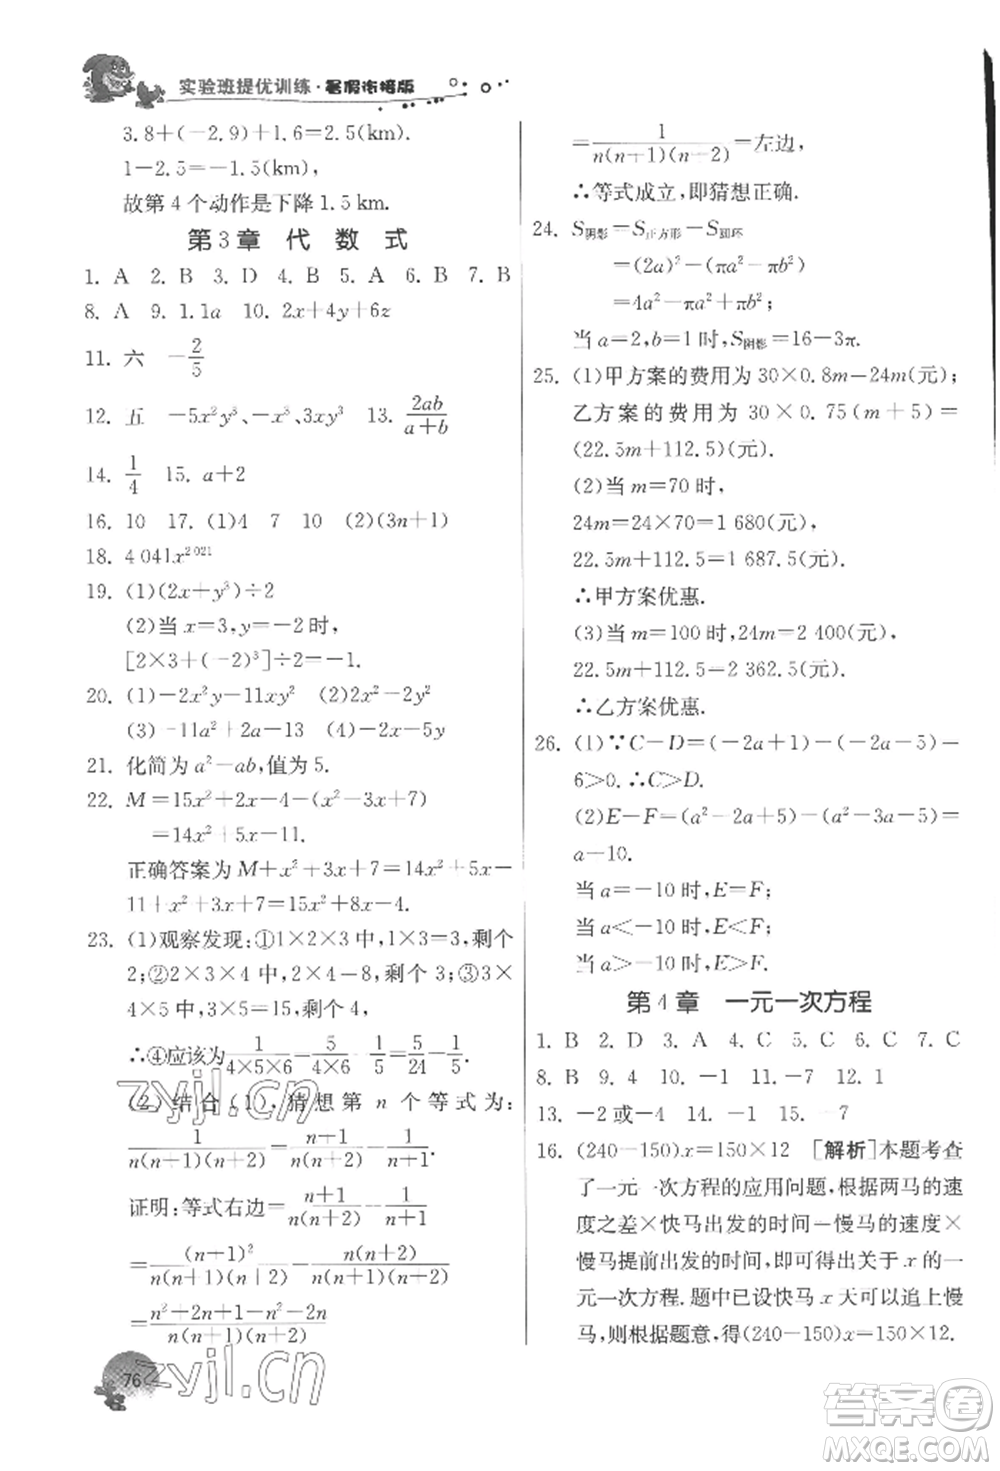 实验班提优训练·暑假衔接版
3.8+(-2.9)+1.6=2.5(km).
1-2.5=-1.5(km),
故第4个动作是下降1.5 km.
第3章 代数式
1. A 2. B 3. D 4. B 5. A 6. B 7. B
8. A 9. 1.1a 10. 2x+4y+6z
11. 六 -2/5
12. 五 -5x²y³、-x⁵、3xy³ 13. 2ab/(a+b)
14. 1/4 15. a+2
16. 10 17. (1)4 7 10 (2)(3n+1)
18. 4 041x^2 021
19. (1)(2x+y³)÷2
(2)当x=3,y=-2时,
[2×3+(-2)³]÷2=-1.
20. (1)-2x²y-11xy² (2)2x²
(3)-11a²+2a-13 (4)-2x-5y
21. 化简为a²-ab,值为5.
22. M=15x²+2x-4-(x²-3x+7)
=14x²+5x-11.
正确答案为M+x²+3x+7=14x²+5x-
11+x²+3x+7=15x²+8x-4.
23. (1)观察发现:①1×2×3中,1×3=3,剩个
2;②2×3×4中,2×4=8,剩个3;③3×
4×5中,3×5=15,剩个4,
∴④应该为1/(4×5×6)=5/24-1/5
(2)结合(1),猜想第n个等式为:
1/(n(n+1)(n+2))=(n+1)/(n(n+2))-1/(n+1).
证明:等式右边=(n+1)/(n(n+2))-1/(n+1)
=(n+1)²/(n(n+1)(n+2))-n(n+2)/(n(n+1)(n+2))
=(n²+2n+1-n²-2n)/(n(n+1)(n+2))
=1/(n(n+1)(n-2))=左边,
∴等式成立,即猜想正确.
24. S阴影=S正方形-S圆环
=(2a)²-(πa²-πb²)
=4a²-πa²+πb²;
当a=2,b=1时,S阴影=16-3π.
25. (1)甲方案的费用为30×0.8m=24m(元);
乙方案的费用为30×0.75(m+5)=
(22.5m+112.5)(元).
(2)当m=70时,
24m=24×70=1 680(元),
22.5m+112.5=1 687.5(元),
∴甲方案优惠.
(3)当m=100时,24m=2 400(元),
22.5m+112.5=2 362.5(元),
∴乙方案优惠.
26. (1)∵C-D=(-2a+1)-(-2a-5)=
6>0.∴C>D.
(2)E-F=(a²-2a+5)-(a²-3a-5)=
a-10.
当a=-10时,E=F;
当a<-10时,E<F;
当a>-10时,E>F.
第4章 一元一次方程
1. B 2. D 3. A 4. C 5. C 6. C 7. C
8. B 9. 4 10. -1 11. -7 12. 1
13. -2或-4 14. -1 15. -7
16. (240-150)x=150×12 [解析]本题考查
了一元一次方程的应用问题,根据两马的速
度之差×快马出发的时间=慢马的速度×
慢马提前出发的时间,即可得出关于x的一
元一次方程.题中已设快马x天可以追上慢
马,则根据题意,得(240-150)x=150×12.
76
zyjl.cn
zyjl.cn
答案圈
MXQE.COM